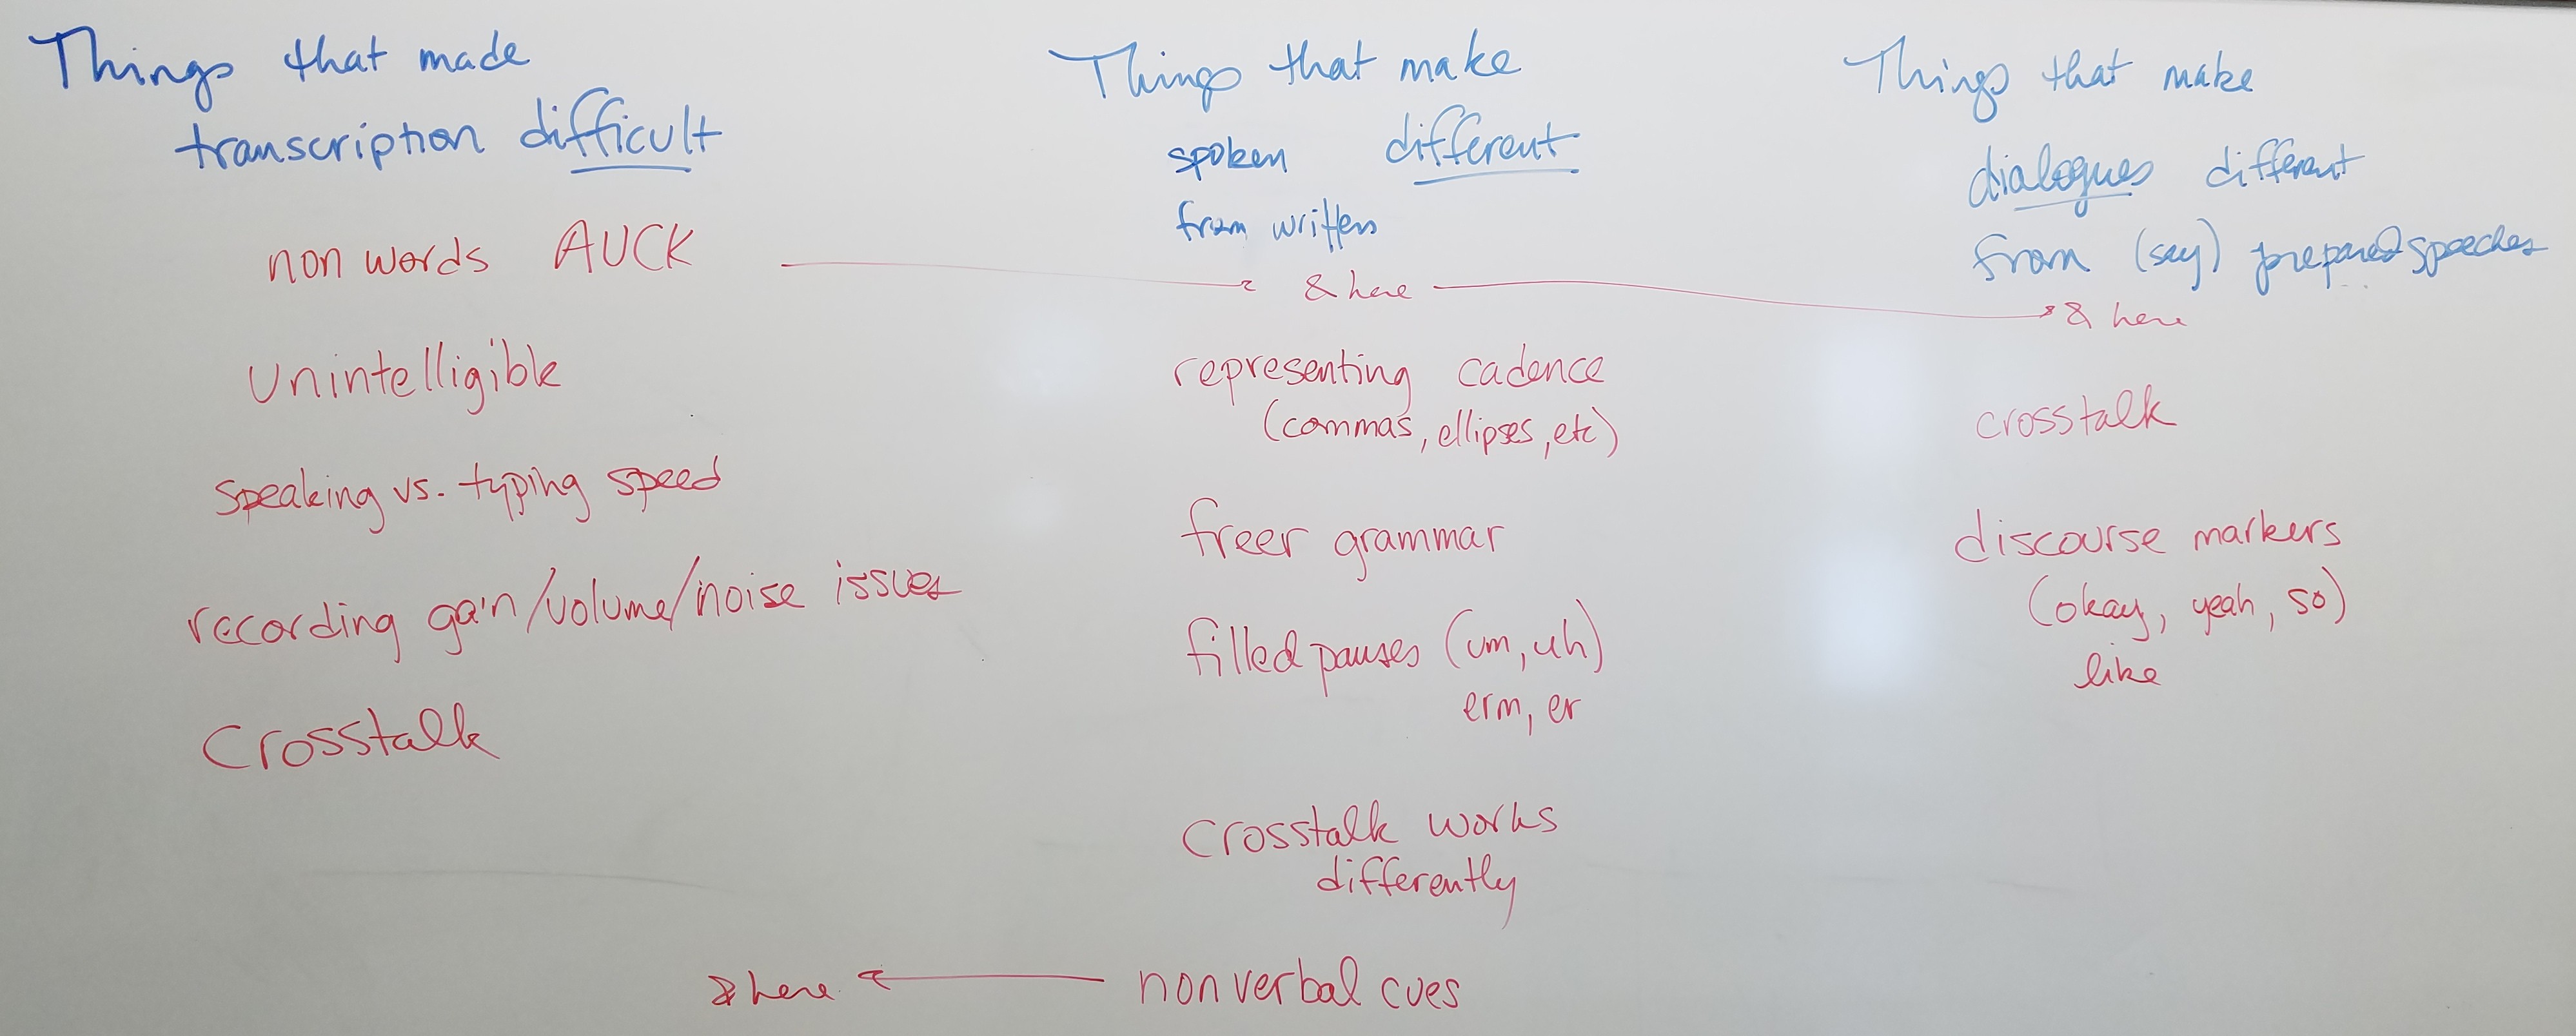 Things that made
transcription difficult
non words AUCK
Unintelligible
speaking vs. typing speed
recording gain/volume/noise issues
Crosstalk
Things that make
spoken different
from written
& here
representing cadence
(commas, ellipses, etc)
freer grammar
filled pauses (um, uh)
erm, er
Crosstalk works
differently
& here
nonverbal cues
Things that make
dialogues different
from (say) prepared speeches
& here
crosstalk
discourse markers
(okay, yeah, so)
like